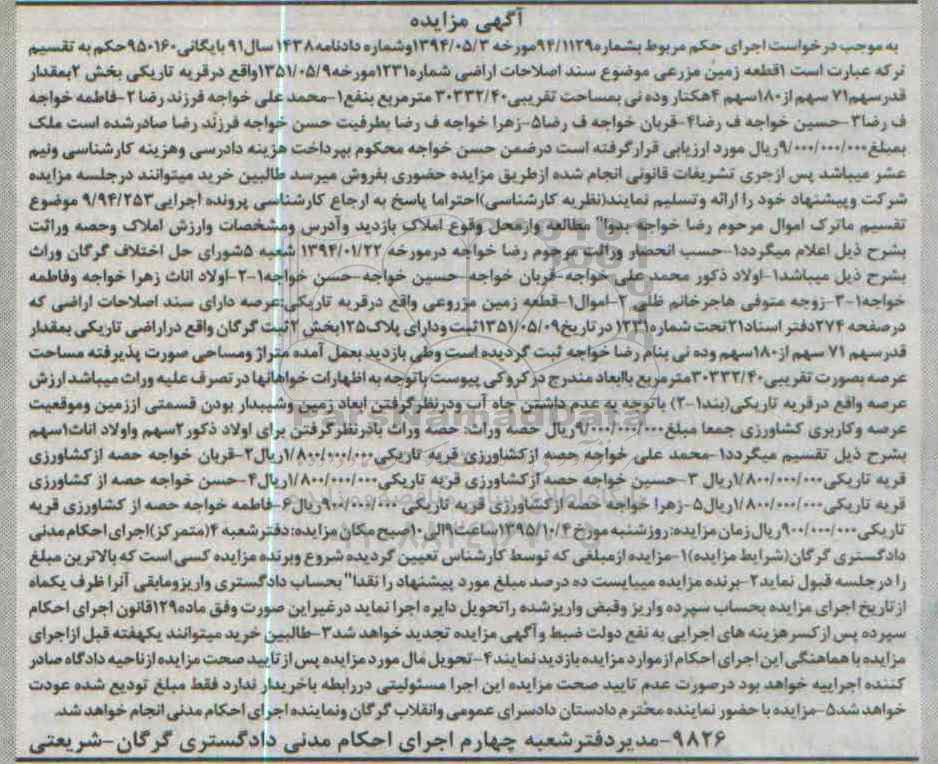 آگهی مزایده
به موجب درخواست اجرای حکم مربوط بشماره ۹۴/۱۱۲۹مورخه ۱۳۹۴/۰۵/۳وشماره دادنامه ۱۴۳۸ سال۹۱ بایگانی۹۵۰۱۶۰حکم به تقسیم
ترکه عبارت است ۱قطعه زمین مزرعی موضوع سند اصلاحات اراضی شماره۱۲۳۱مورخه۱۳۵۱/۰۵/۹واقع درقریه تاریکی بخش ۲بمقدار
قدرسهم۷۱ سهم از۱۸۰سهم ۴هکتار وده نی بمساحت تقریبی۳۰۳۳۲/۴۰ مترمربع بنفع۱-محمدعلی خواجه فرزند رضا ۲-فاطمه خواجه
ف رضا۳-حسین خواجه ف رضا۴-قربان خواجه ف رضا۵-زهرا خواجه ف رضا بطرفیت حسن خواجه فرزند رضا صادرشده است ملک
بمبلغ۹/۰۰۰/۰۰۰/۰۰۰ریال مورد ارزیابی قرارگرفته است درضمن حسن خواجه محکوم بپرداخت هزینه دادرسی وهزینه کارشناسی ونیم
عشر میباشد پس ازجری تشریفات قانونی انجام شده ازطریق مزایده حضوری بفروش میرسد طالبین خرید میتوانند درجلسه مزایده
شرکت وپیشنهاد خود را ارائه وتسلیم نمایند(نظریه کارشناسی)احتراما پاسخ به ارجاع کارشناسی پرونده اجرایی۹/۹۴/۲۵۳ موضوع
تقسیم ماترک اموال مرحوم رضا خواجه بدوا" مطالعه وازمحل وقوع املاک بازدید وآدرس ومشخصات وارزش املاک وحصه وراثت
بشرح ذیل اعلام میگردد۱-حسب انحصار وراثت مرحوم رضا خواجه درمورخه ۱۳۹۴/۰۱/۲۲ شعبه ۵شورای حل اختلاف گرگان وراث
بشرح ذیل میباشد۱-اولاد ذکور محمد علی خواجه-قربان خواجه-حسین خواجه-حسن خواجه۱-۲-اولاد اناث زهرا خواجه وفاطمه
خواجه۱-۳-زوجه متوفی هاجرخانم ظلی ۲-اموال۱-قطعه زمین مزروعی واقع درقریه تاریکی:عرصه دارای سند اصلاحات اراضی که
درصفحه ۲۷۴دفتر اسناد۲۱تحت شماره۱۲۳۱ در تاریخ۱۳۵۱/۰۵/۰۹ثبت ودارای پلاک۱۲۵بخش ۲ثبت گرگان واقع دراراضی تاریکی بمقدار
قدرسهم ۷۱ سهم از۱۸۰سهم وده نی بنام رضا خواجه ثبت گردیده است وطی بازدید بعمل آمده متراژ ومساحی صورت پذیرفته مساحت
عرصه بصورت تقریبی۳۰۳۳۲/۴۰مترمربع باابعاد مندرج درکروکی پیوست باتوجه به اظهارات خواهانها در تصرف علیه وراث میباشد ارزش
عرصه واقع درقریه تاریکی(بند۱-۲) باتوجه به عدم داشتن چاه آب ودرنظرگرفتن ابعاد زمین وشیبدار بودن قسمتی اززمین وموقعیت
عرصه وکاربری کشاورزی جمعا مبلغ۹/۰۰۰/۰۰۰/۰۰۰ریال حصه وراث: حصه وراث بادرنظرگرفتن برای اولاد ذکور۲سهم واولاد اناث۱سهم
بشرح ذیل تقسیم میگردد۱-محمد علی خواجه حصه ازکشاورزی قریه تاریکی۱/۸۰۰/۰۰۰/۰۰۰ریال۲-قربان خواجه حصه ازکشاورزی
قریه تاریکی۱/۸۰۰/۰۰۰/۰۰۰ریال ۳-حسین خواجه حصه ازکشاورزی قریه تاریکی۱/۸۰۰/۰۰۰/۰۰۰ریال۴-حسن خواجه حصه از کشاورزی
قریه تاریکی۱/۸۰۰/۰۰۰/۰۰۰ریال۵-زهرا خواجه حصه ازکشاورزی قریه تاریکی ۹۰۰/۰۰۰/۰۰۰ریال۶-فاطمه خواجه حصه از کشاورزی قریه
تاریکی۹۰۰/۰۰۰/۰۰۰ریال زمان مزایده:روزشنبه مورخ۱۳۹۵/۱۰/۴ساعت۹الی۱۰صبح مکان مزایده:دفترشعبه ۴(متمرکز)اجرای احکام مدنی
دادگستری گرگان(شرایط مزایده)۱-مزایده ازمبلغی که توسط کارشناس تعیین گردیده شروع وبرنده مزایده کسی است که بالاترین مبلغ
را درجلسه قبول نماید۲-برنده مزایده میبایست ده درصد مبلغ مورد پیشنهاد را نقدا" بحساب دادگستری واریزومابقی آنرا ظرف یکماه
ازتاریخ اجرای مزایده بحساب سپرده واریز وقبض واریزشده راتحویل دایره اجرا نماید درغیراین صورت وفق ماده۱۲۹قانون اجرای احکام
سپرده پس ازکسرهزینه های اجرایی به نفع دولت ضبط وآگهی مزایده تجدید خواهد شد۳-طالبین خرید میتوانند یکهفته قبل ازاجرای
مزایده با هماهنگی این اجرای احکام ازموارد مزایده بازدید نمایند۴-تحویل مال مورد مزایده پس از تایید صحت مزایده ازناحیه دادگاه صادر
کننده اجراییه خواهد بود درصورت عدم تایید صحت مزایده این اجرا مسئولیتی دررابطه باخریدار ندارد فقط مبلغ تودیع شده عودت
خواهد شد۵-مزایده با حضور نماینده محترم دادستان دادسرای عمومی وانقلاب گرگان ونماینده اجرای احکام مدنی انجام خواهد شد.
۹۸۲۶-مدیردفترشعبه چهارم اجرای احکام مدنی دادگستری گرگان-شریعتی